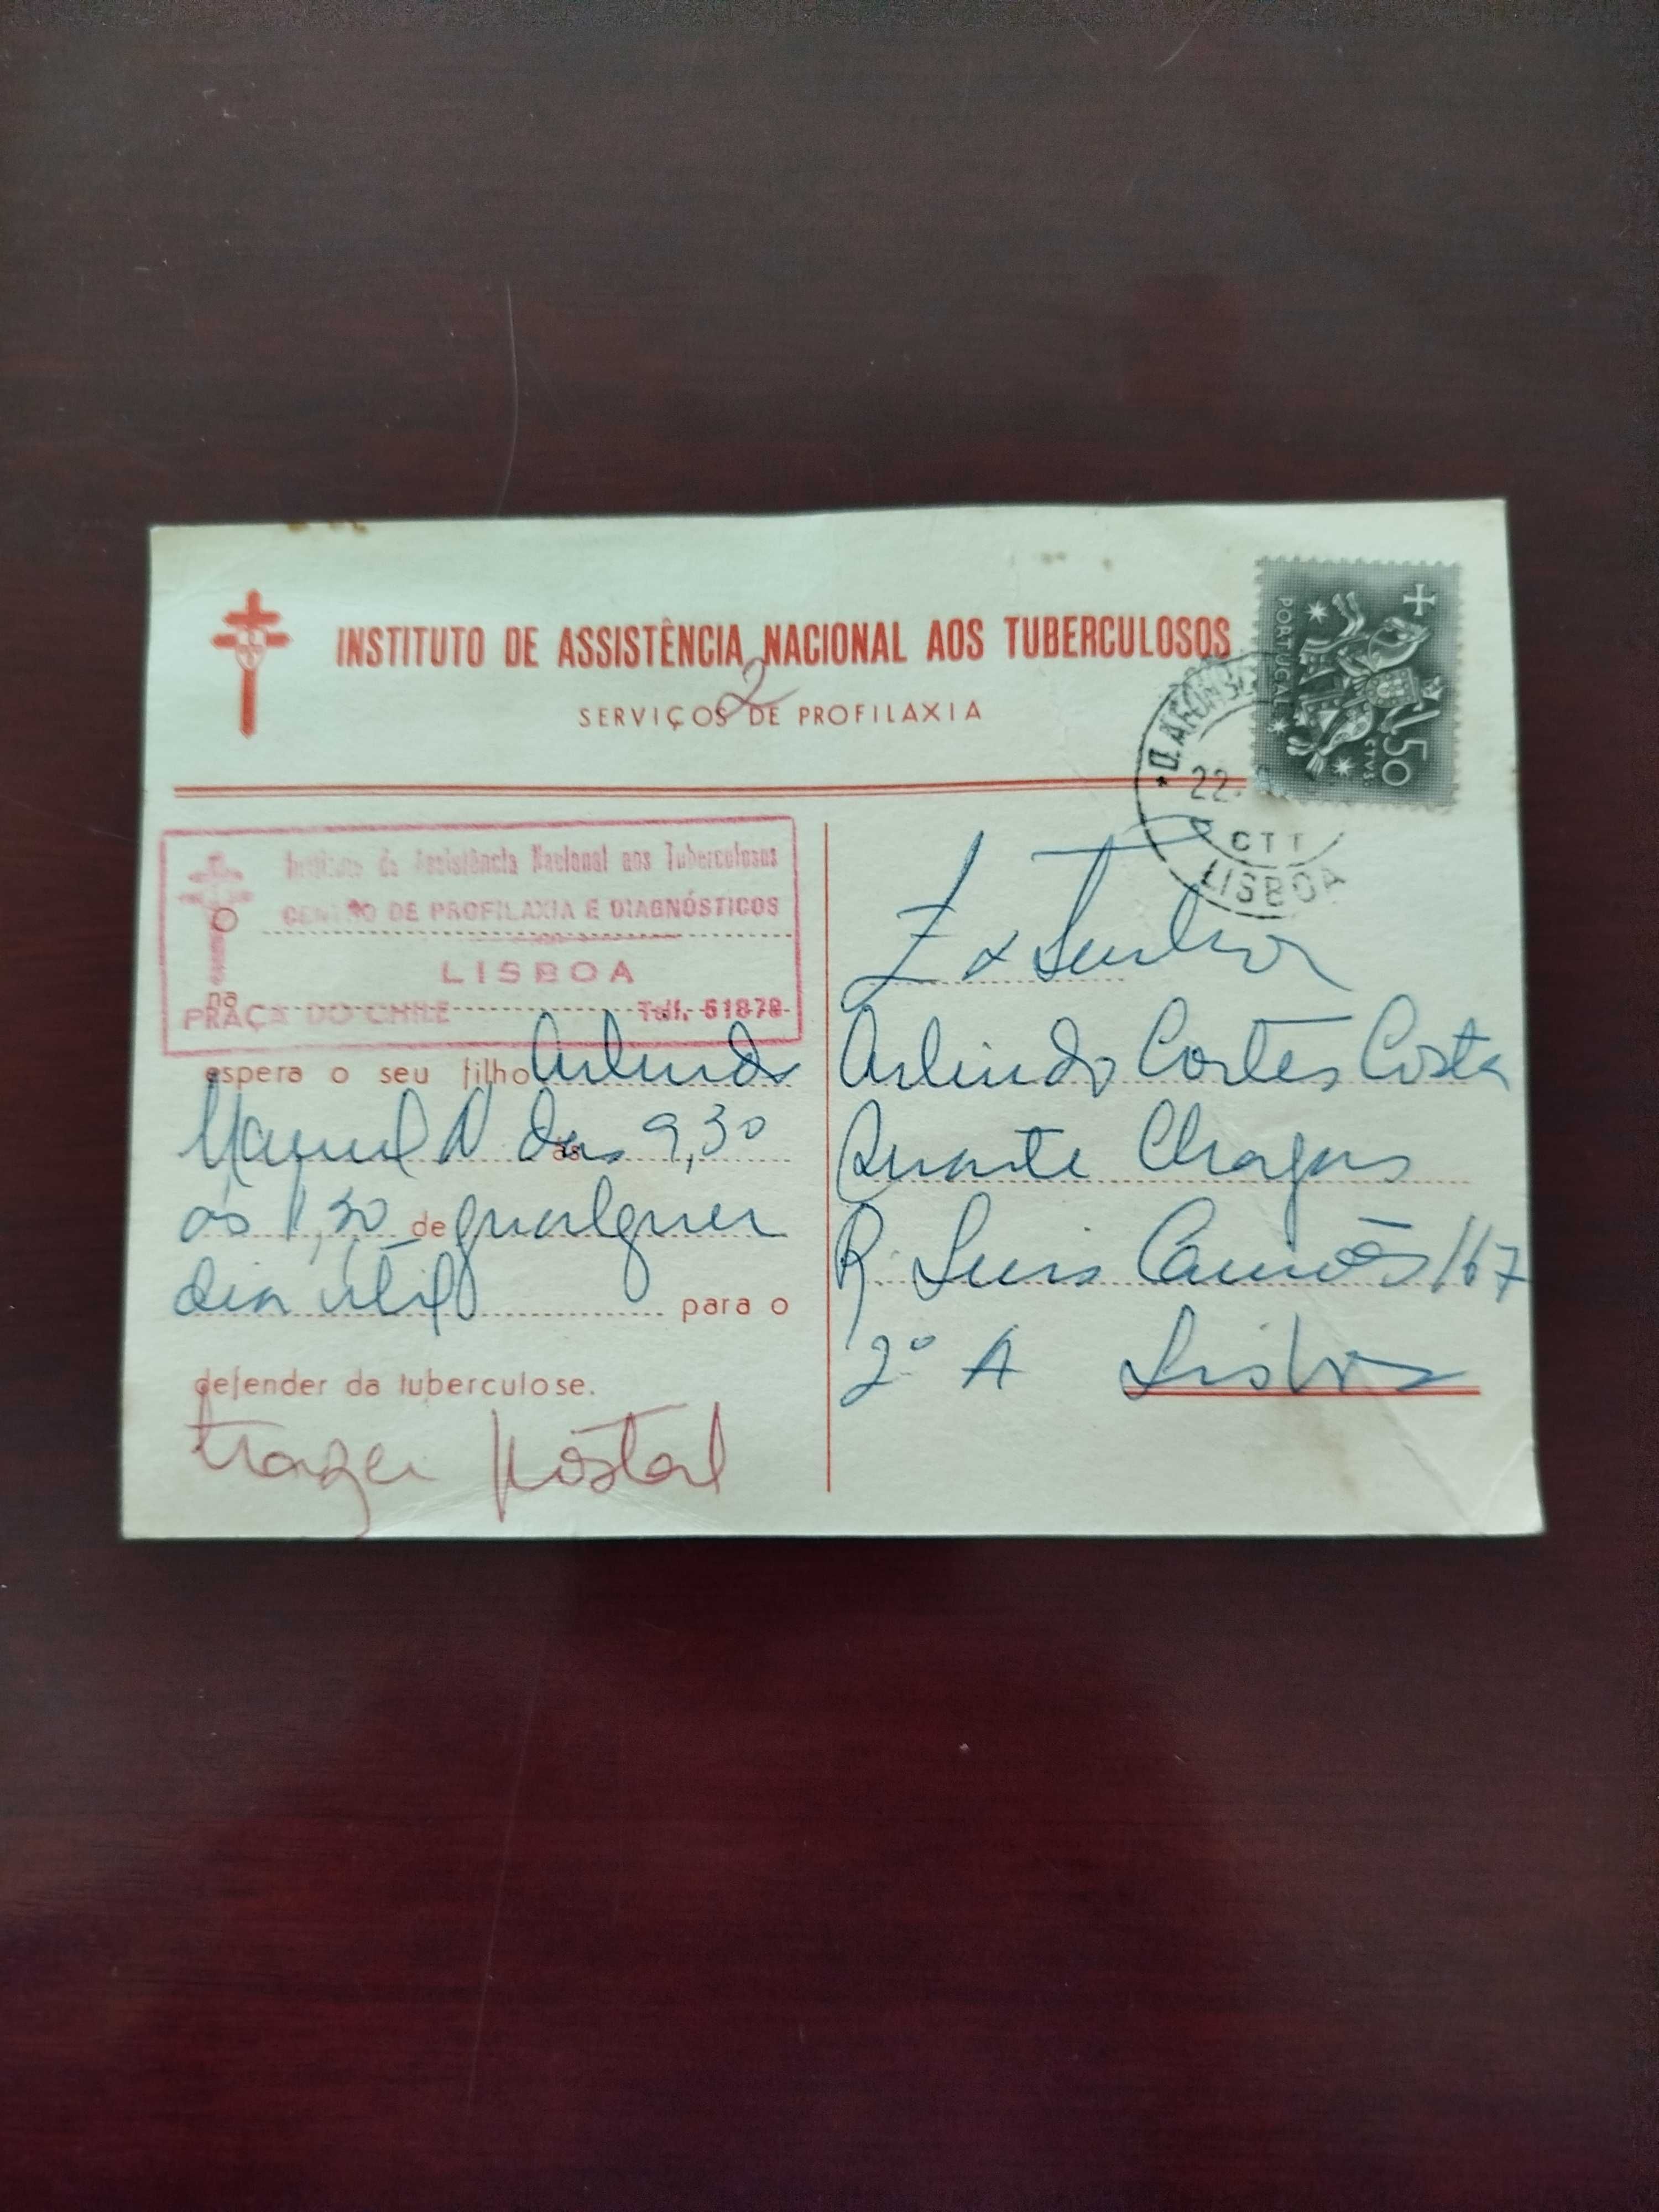 INSTITUTO DE ASSISTÊNCIA NACIONAL AOS TUBERCULOSOS
2
SERVIÇOS DE PROFILAXIA
PORTUGAL
50
CTVS.
D. AFONSO
22.
CTT
LISBOA
Instituto de Assistência Nacional aos Tuberculosos
O
CENTRO DE PROFILAXIA E DIAGNÓSTICOS
LISBOA
na
PRAÇA DO CHILE Telf. 51878
espera o seu filho Arlindo
Manuel D das 9,30
às
às 1,30 de qualquer
dia útil para o
defender da tuberculose.
trazer postal
Ex Senhor
Arlindo Cortês Costa
Duarte Chagas
R. Luis Camões 167
2º A Lisboa